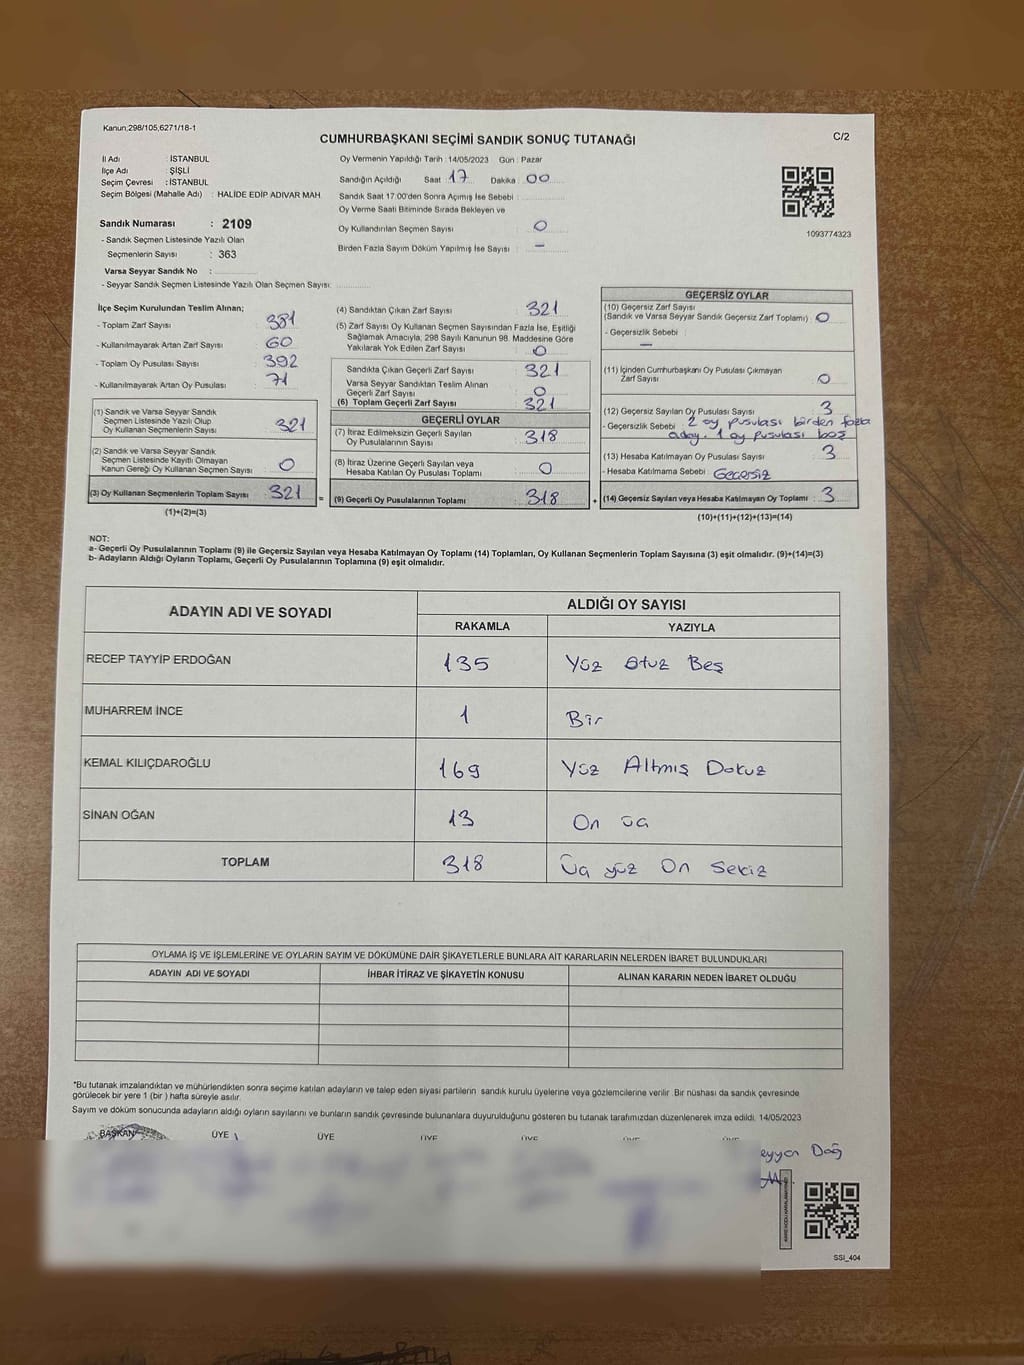 Kanun;298/105,6271/18-1
CUMHURBAŞKANI SEÇİMİ SANDIK SONUÇ TUTANAĞI
C/2
İl Adı : İSTANBUL
İlçe Adı : ŞİŞLİ
Seçim Çevresi : İSTANBUL
Seçim Bölgesi (Mahalle Adı) : HALİDE EDİP ADIVAR MAH
Sandık Numarası : 2109
- Sandık Seçmen Listesinde Yazılı Olan
Seçmenlerin Sayısı : 363
Varsa Seyyar Sandık No :
- Seyyar Sandık Seçmen Listesinde Yazılı Olan Seçmen Sayısı:
Oy Vermenin Yapıldığı Tarih : 14/05/2023 Gün : Pazar
Sandığın Açıldığı Saat 17 Dakika 00
Sandık Saat 17:00'den Sonra Açımış İse Sebebi :
Oy Verme Saati Bitiminde Sırada Bekleyen ve
Oy Kullandırılan Seçmen Sayısı 0
Birden Fazla Sayım Döküm Yapılmış İse Sayısı : -
1093774323
İlçe Seçim Kurulundan Teslim Alınan;
- Toplam Zarf Sayısı 381
- Kullanılmayarak Artan Zarf Sayısı 60
- Toplam Oy Pusulası Sayısı 392
- Kullanılmayarak Artan Oy Pusulası 71
(1) Sandık ve Varsa Seyyar Sandık
Seçmen Listesinde Yazılı Olup
Oy Kullanan Seçmenlerin Sayısı 321
(2) Sandık ve Varsa Seyyar Sandık
Seçmen Listesinde Kayıtlı Olmayan
Kanun Gereği Oy Kullanan Seçmen Sayısı 0
(3) Oy Kullanan Seçmenlerin Toplam Sayısı : 321
(1)+(2)=(3)
(4) Sandıktan Çıkan Zarf Sayısı 321
(5) Zarf Sayısı Oy Kullanan Seçmen Sayısından Fazla İse, Eşitliği
Sağlamak Amacıyla, 298 Sayılı Kanunun 98. Maddesine Göre
Yakılarak Yok Edilen Zarf Sayısı 0
Sandıkta Çıkan Geçerli Zarf Sayısı 321
Varsa Seyyar Sandıktan Teslim Alınan
Geçerli Zarf Sayısı 0
(6) Toplam Geçerli Zarf Sayısı 321
GEÇERLİ OYLAR
(7) İtiraz Edilmeksizin Geçerli Sayılan
Oy Pusulalarının Sayısı 318
(8) İtiraz Üzerine Geçerli Sayılan veya
Hesaba Katılan Oy Pusulası Toplamı 0
= (9) Geçerli Oy Pusulalarının Toplamı 318
GEÇERSİZ OYLAR
(10) Geçersiz Zarf Sayısı
(Sandık ve Varsa Seyyar Sandık Geçersiz Zarf Toplamı) : 0
- Geçersizlik Sebebi : -
(11) İçinden Cumhurbaşkanı Oy Pusulası Çıkmayan
Zarf Sayısı 0
(12) Geçersiz Sayılan Oy Pusulası Sayısı 3
- Geçersizlik Sebebi : 2 oy pusulası birden fazla
aday. 1 oy pusulası boş
(13) Hesaba Katılmayan Oy Pusulası Sayısı 3
- Hesaba Katılmama Sebebi : Geçersiz
+ (14) Geçersiz Sayılan veya Hesaba Katılmayan Oy Toplamı : 3
(10)+(11)+(12)+(13)=(14)
NOT:
a- Geçerli Oy Pusulalarının Toplamı (9) ile Geçersiz Sayılan veya Hesaba Katılmayan Oy Toplamı (14) Toplamları, Oy Kullanan Seçmenlerin Toplam Sayısına (3) eşit olmalıdır. (9)+(14)=(3)
b- Adayların Aldığı Oyların Toplamı, Geçerli Oy Pusulalarının Toplamına (9) eşit olmalıdır.
ADAYIN ADI VE SOYADI
ALDIĞI OY SAYISI
RAKAMLA YAZIYLA
RECEP TAYYİP ERDOĞAN 135 Yüz Otuz Beş
MUHARREM İNCE 1 Bir
KEMAL KILIÇDAROĞLU 169 Yüz Altmış Dokuz
SİNAN OĞAN 13 On üç
TOPLAM 318 Üç yüz On Sekiz
OYLAMA İŞ VE İŞLEMLERİNE VE OYLARIN SAYIM VE DÖKÜMÜNE DAİR ŞİKAYETLERLE BUNLARA AİT KARARLARIN NELERDEN İBARET BULUNDUKLARI
ADAYIN ADI VE SOYADI İHBAR İTİRAZ VE ŞİKAYETİN KONUSU ALINAN KARARIN NEDEN İBARET OLDUĞU
*Bu tutanak imzalandıktan ve mühürlendikten sonra seçime katılan adayların ve talep eden siyasi partilerin sandık kurulu üyelerine veya gözlemcilerine verilir. Bir nüshası da sandık çevresinde
görülecek bir yere 1 (bir ) hafta süreyle asılır.
Sayım ve döküm sonucunda adayların aldığı oyların sayılarını ve bunların sandık çevresinde bulunanlara duyurulduğunu gösteren bu tutanak tarafımızdan düzenlenerek imza edildi. 14/05/2023
BAŞKAN ÜYE ÜYE ÜYE ÜYE ÜYE ÜYE
Dağ
SSİ_404